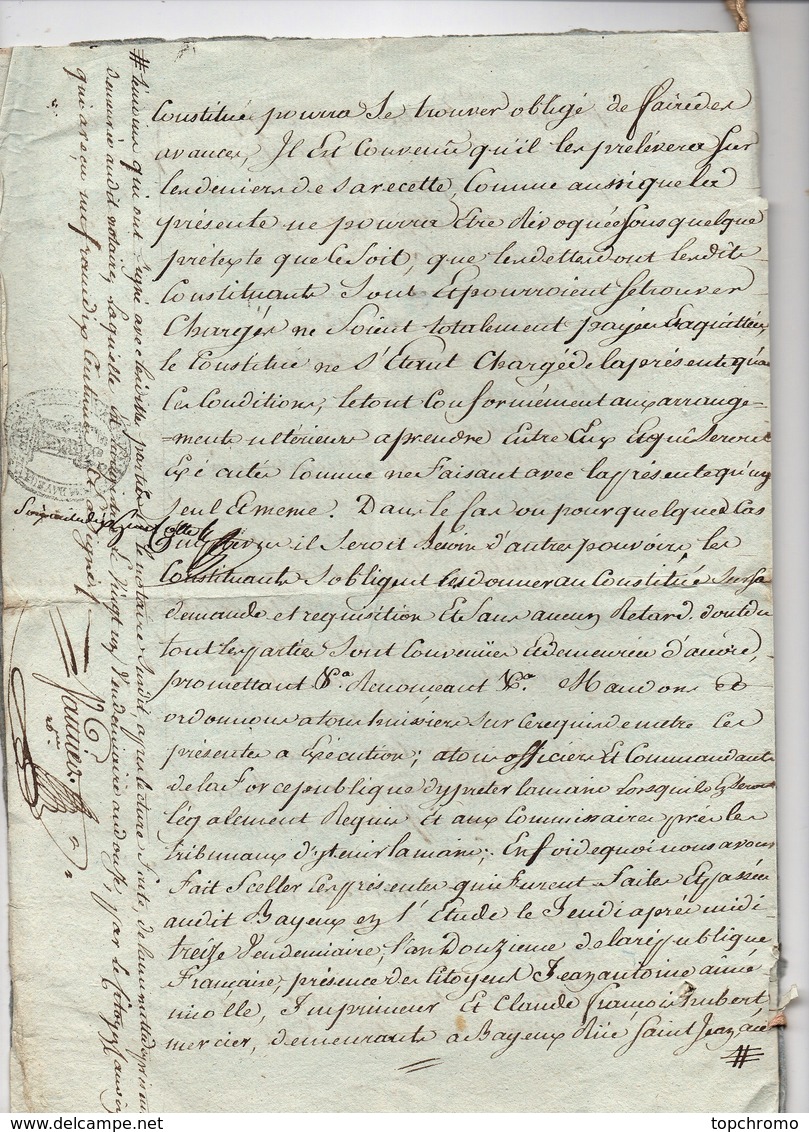 Constitué pourra se trouver obligé de faire des
avances, Il Est Convenû qu'il les prélévera Sur
les deniers de sa recette, Comme aussi que la
présente ne pourra Etre Révoquée sous quelque
prétexte que ce soit, que les dettes dont lesdits
Constituants sont Et pourroient se trouver
Chargés ne Soient totalement payées Et aquittées
le Constitué ne s'Etant Chargé de la présente qu'à
Ces Conditions, le tout Conformément aux arrange=
=ments ultérieurs a prendre Entre Eux Et qui Seront
Exécutés Comme ne Faisant avec la présente qu'un
seul Et meme. Dans le Cas ou pour quelques Cas
il seroit Besoin d'autres pouvoirs, les
Constituants s'obligent les donner au Constitué sur sa
demande et requisition Et Sans aucun Retard, dont du
tout les parties sont Convenües Et demeurées d'accord,
promettant &a. Renonceant &a. Mandons Et
ordonnons a tous huissiers sur ce requis de metre Ces
présentes a Exécution; a tous officiers Et Commandants
de la Force publique d'y preter la main Lorsqu'ils En seront
légalement Requis Et aux Commissaires prés les
tribunaux d'y tenir la main; En foi de quoi nous avons
Fait Sceller Ces présentes qui Furent Faites Et passées
audit Bayeux en l'Etude le Jeudi aprés midi
treize Vendemiaire, l'an Douzieme de la république
Française, présence des Citoyens Jean antoine aimé
nicolle, Imprimeur Et Claude François hubert
mercier, demeurants a Bayeux Rüe Saint Jean,
#
# témoins qui ont signé avec lesdittes parties Et le notaire Susdit, aprés lecture Faite, de la minutte des présentes
demeurée audit notaire, laquelle a Eté Enregistrée le Vingt un Vendemiaire an douze, par le Citoyen
qui a reçu un franc dix Centimes Et a signé